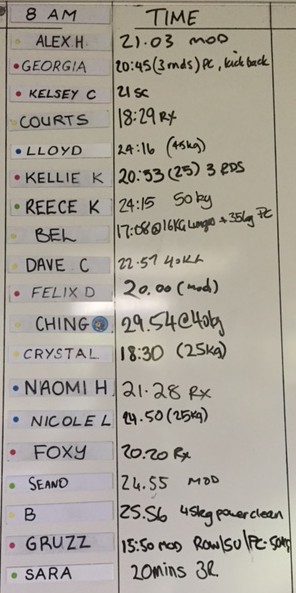 8 AM TIME
ALEX.H. 21.03 MOD
GEORGIA 20:45 (3 rnds) PC, kick back
KELSEY C 21 SC
COURTS 18:29 Rx
LLOYD 24:16 (45kg)
KELLIE K 20:53 (25) 3 RDS
REECE K 24:15 50kg
BEL 17:08@16KG Lunges + 35kg PC
DAVE. C 22.57
FELIX D 20.00 (mod)
CHING 29.54@40kg
CRYSTAL 18:30 (25KG)
NAOMI H 21.28 Rx
NICOLE L 24.50 (25kg)
FOXY 20.20 Rx
SEANO 24.55 MOD
B 25.56 45kg power clean
GRUZZ 15:50 MOD ROW/SU/PC-50KG
SARA 20mins 3R